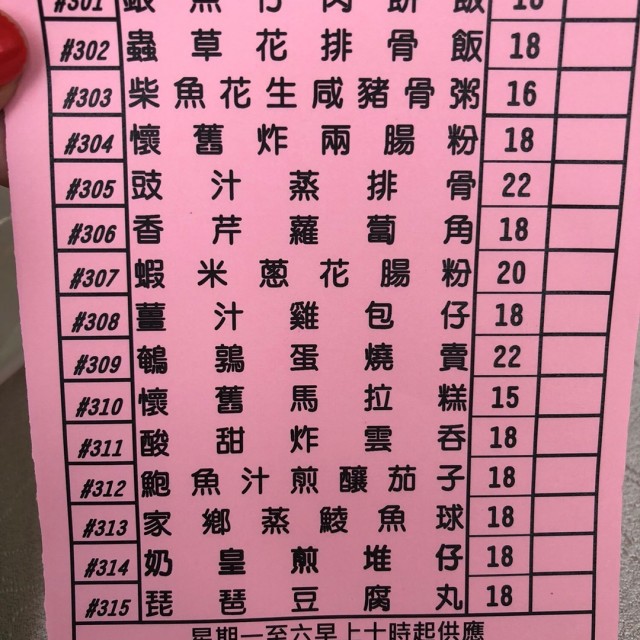 #301 銀魚仔肉餅飯 18
#302 蟲草花排骨飯 18
#303 柴魚花生咸豬骨粥 16
#304 懷舊炸兩腸粉 18
#305 豉汁蒸排骨 22
#306 香芹蘿蔔角 18
#307 蝦米蔥花腸粉 20
#308 薑汁雞包仔 18
#309 鵪鶉蛋燒賣 22
#310 懷舊馬拉糕 15
#311 酸甜炸雲吞 18
#312 鮑魚汁煎釀茄子 18
#313 家鄉蒸鯪魚球 18
#314 奶皇煎堆仔 18
#315 琵琶豆腐丸 18
星期一至六早上十時起供應